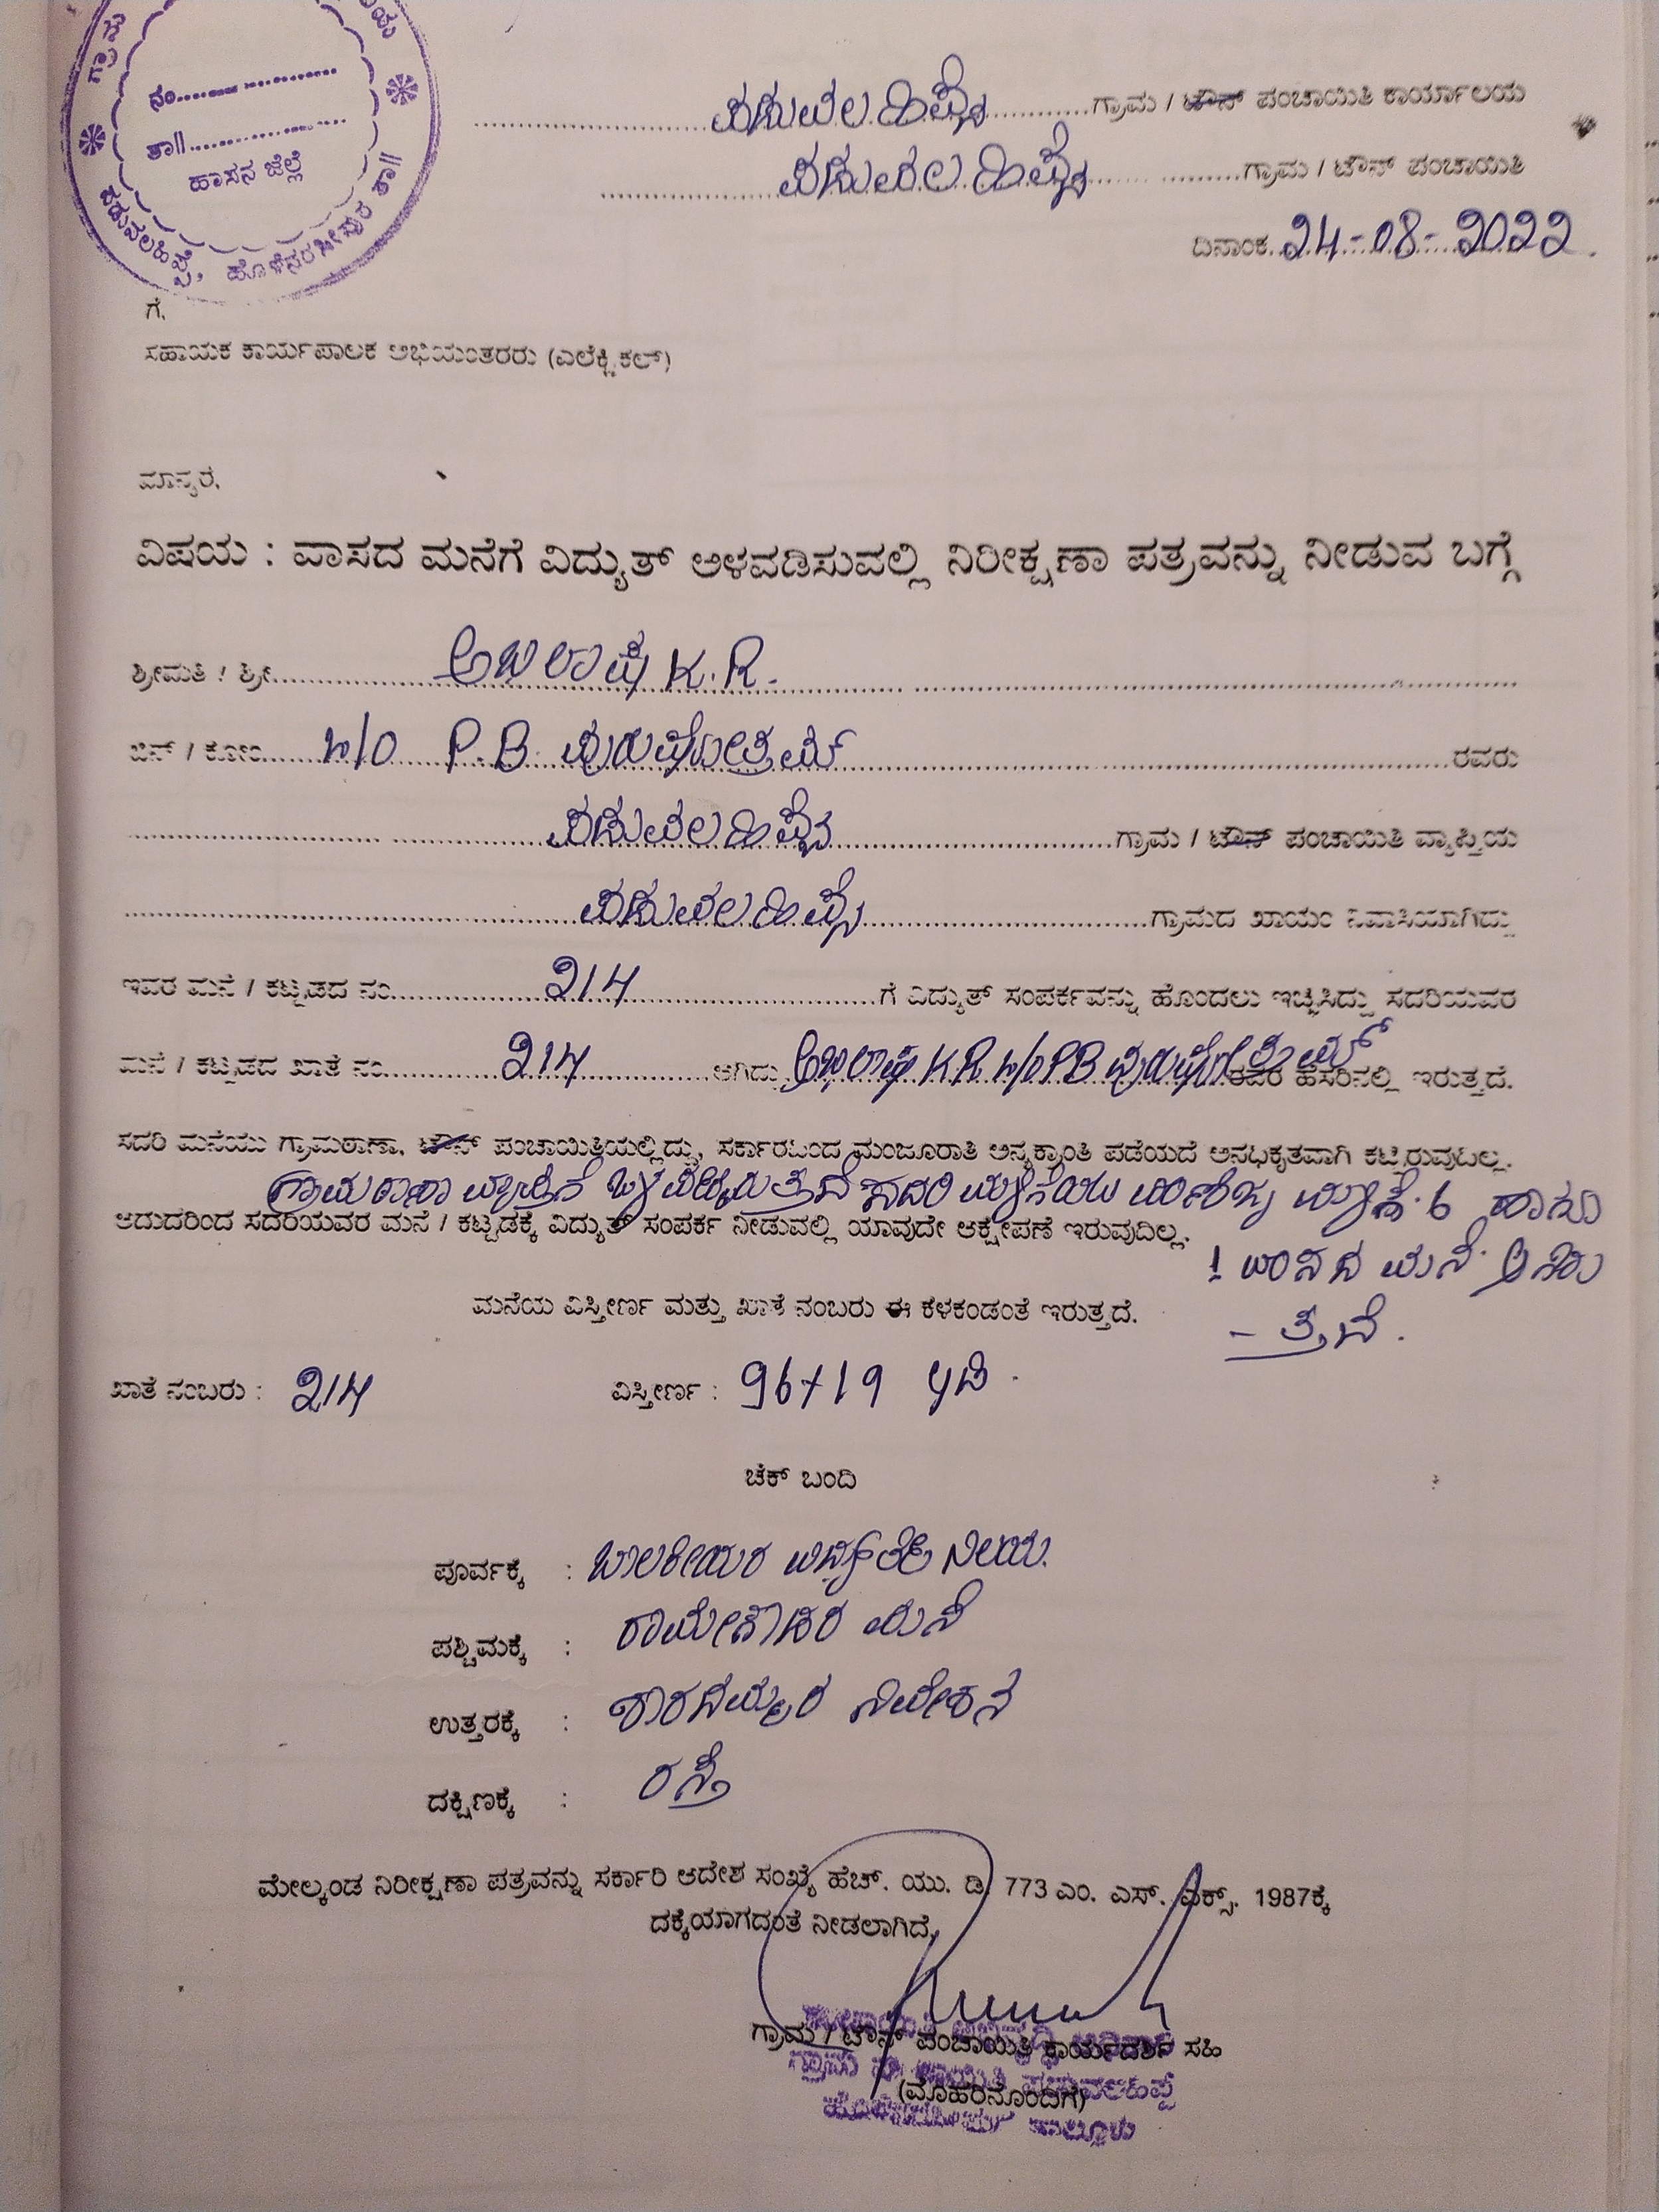 ನಂ..........................
ತಾ||..........................
ಹಾಸನ ಜಿಲ್ಲೆ
ಪಡುವಲಹಿಪ್ಪೆ, ಹೊಳೆನರಸೀಪುರ ತಾ||
ಪಡುವಲಹಿಪ್ಪೆ ಗ್ರಾಮ / ಟೌನ್ ಪಂಚಾಯಿತಿ ಕಾರ್ಯಾಲಯ
ಪಡುವಲಹಿಪ್ಪೆ ಗ್ರಾಮ / ಟೌನ್ ಪಂಚಾಯಿತಿ
ದಿನಾಂಕ. 24-08-2022.
ಗೆ,
ಸಹಾಯಕ ಕಾರ್ಯಪಾಲಕ ಅಭಿಯಂತರರು (ಎಲೆಕ್ಟ್ರಿಕಲ್)
ಮಾನ್ಯರೆ,
ವಿಷಯ : ವಾಸದ ಮನೆಗೆ ವಿದ್ಯುತ್ ಅಳವಡಿಸುವಲ್ಲಿ ನಿರೀಕ್ಷಣಾ ಪತ್ರವನ್ನು ನೀಡುವ ಬಗ್ಗೆ
ಶ್ರೀಮತಿ / ಶ್ರೀ. K.R.
ಬಿನ್ / ಕೋಂ W/O P.B. ಪುರುಷೋತ್ತಮ್ ರವರು
ಪಡುವಲಹಿಪ್ಪೆ ಗ್ರಾಮ / ಟೌನ್ ಪಂಚಾಯಿತಿ ವ್ಯಾಪ್ತಿಯ
ಪಡುವಲಹಿಪ್ಪೆ ಗ್ರಾಮದ ಖಾಯಂ ನಿವಾಸಿಯಾಗಿದ್ದು
ಇವರ ಮನೆ / ಕಟ್ಟಡದ ನಂ. 214 ಗೆ ವಿದ್ಯುತ್ ಸಂಪರ್ಕವನ್ನು ಹೊಂದಲು ಇಚ್ಛಿಸಿದ್ದು ಸದರಿಯವರ
ಮನೆ / ಕಟ್ಟಡದ ಖಾತೆ ನಂ. 214 ಆಗಿದ್ದು KR W/O PB ಪುರುಷೋತ್ತಮ್ ರವರ ಹೆಸರಿನಲ್ಲಿ ಇರುತ್ತದೆ.
ಸದರಿ ಮನೆಯು ಗ್ರಾಮಠಾಣಾ, ಟೌನ್ ಪಂಚಾಯಿತ್ತಿಯಲ್ಲಿದ್ದು, ಸರ್ಕಾರದಿಂದ ಮಂಜೂರಾತಿ ಅನ್ಯಕ್ರಾಂತಿ ಪಡೆಯದೆ ಅನಧಿಕೃತವಾಗಿ ಕಟ್ಟಿರುವುದಿಲ್ಲ.
ಗ್ರಾಮಠಾಣಾ ವ್ಯಾಪ್ತಿಗೆ ಸದರಿ ಮನೆಯು ವಾಣಿಜ್ಯ 6 ಹಾಗೂ
ಆದುದರಿಂದ ಸದರಿಯವರ ಮನೆ / ಕಟ್ಟಡಕ್ಕೆ ವಿದ್ಯುತ್ ಸಂಪರ್ಕ ನೀಡುವಲ್ಲಿ ಯಾವುದೇ ಆಕ್ಷೇಪಣೆ ಇರುವುದಿಲ್ಲ.
1 ವಾಸದ ಮನೆ ಆಗಿರು
- ತ್ತದೆ.
ಮನೆಯ ವಿಸ್ತೀರ್ಣ ಮತ್ತು ಖಾತೆ ನಂಬರು ಈ ಕೆಳಕಂಡಂತೆ ಇರುತ್ತದೆ.
ಖಾತೆ ನಂಬರು : 214 ವಿಸ್ತೀರ್ಣ : 96+19 ಅಡಿ.
ಚೆಕ್ ಬಂದಿ
ಪೂರ್ವಕ್ಕೆ : ಬಾಲಕಿಯರ ವಿದ್ಯಾರ್ಥಿ ನಿಲಯ.
ಪಶ್ಚಿಮಕ್ಕೆ : ರಾಮೇಗೌಡರ ಮನೆ
ಉತ್ತರಕ್ಕೆ : ಶಾರದಮ್ಮರ ನಿವೇಶನ
ದಕ್ಷಿಣಕ್ಕೆ : ರಸ್ತೆ
ಮೇಲ್ಕಂಡ ನಿರೀಕ್ಷಣಾ ಪತ್ರವನ್ನು ಸರ್ಕಾರಿ ಆದೇಶ ಸಂಖ್ಯೆ ಹೆಚ್. ಯು. ಡಿ. 773 ಎಂ. ಎಸ್. ಎಕ್ಸ್. 1987ಕ್ಕೆ
ದಕ್ಕೆಯಾಗದಂತೆ ನೀಡಲಾಗಿದೆ,
ಗ್ರಾಮ / ಟೌನ್ ಪಂಚಾಯಿತಿ ಕಾರ್ಯದರ್ಶಿ ಸಹಿ
(ಮೊಹರಿನೊಂದಿಗೆ)